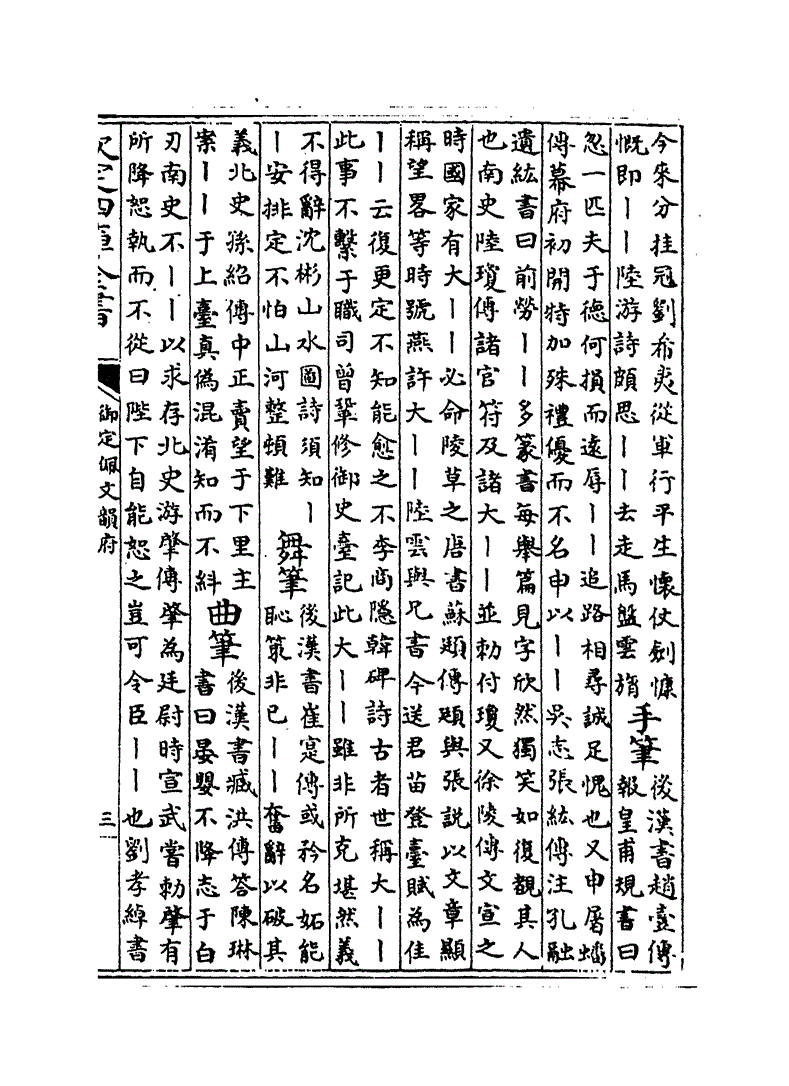 今來分挂冠劉希夷從軍行平生懷仗劍慷
慨即丨丨陸游詩頗思丨丨去走馬盤雲旓
手筆
後漢書趙壹傳
報皇甫規書曰
忽一匹夫于德何損而遠辱丨丨追路相尋誠足愧也又申屠蟠
傳幕府初開特加殊禮優而不名申以丨丨吳志張紘傳注孔融
遺紘書曰前勞丨丨多篆書每舉篇見字欣然獨笑如復覩其人
也南史陸瓊傳諸官符及諸大丨丨並勅付瓊又徐陵傳文宣之
時國家有大丨丨必命陵草之唐書蘇頲傳頲與張說以文章顯
稱望畧等時號燕許大丨丨陸雲與兄書今送君苗登臺賦為佳
丨丨云復更定不知能愈之不李商隱韓碑詩古者世稱大丨丨
此事不繫于職司曾鞏修御史臺記此大丨丨雖非所克堪然義
不得辭沈彬山水圖詩須知丨
丨安排定不怕山河整頓難
舞筆
後漢書崔寔傳或矜名妬能
恥策非已丨丨奮辭以破其
義北史孫紹傳中正賣望于下里主
案丨丨于上臺真偽混淆知而不糾
曲筆
後漢書臧洪傳答陳琳
書曰晏嬰不降志于白
刃南史不丨丨以求存北史游肇傳肇為廷尉時宣武嘗勅肇有
所降恕執而不從曰陛下自能恕之豈可令臣丨丨也劉孝綽書
欽定四庫全書
御定佩文韻府
三